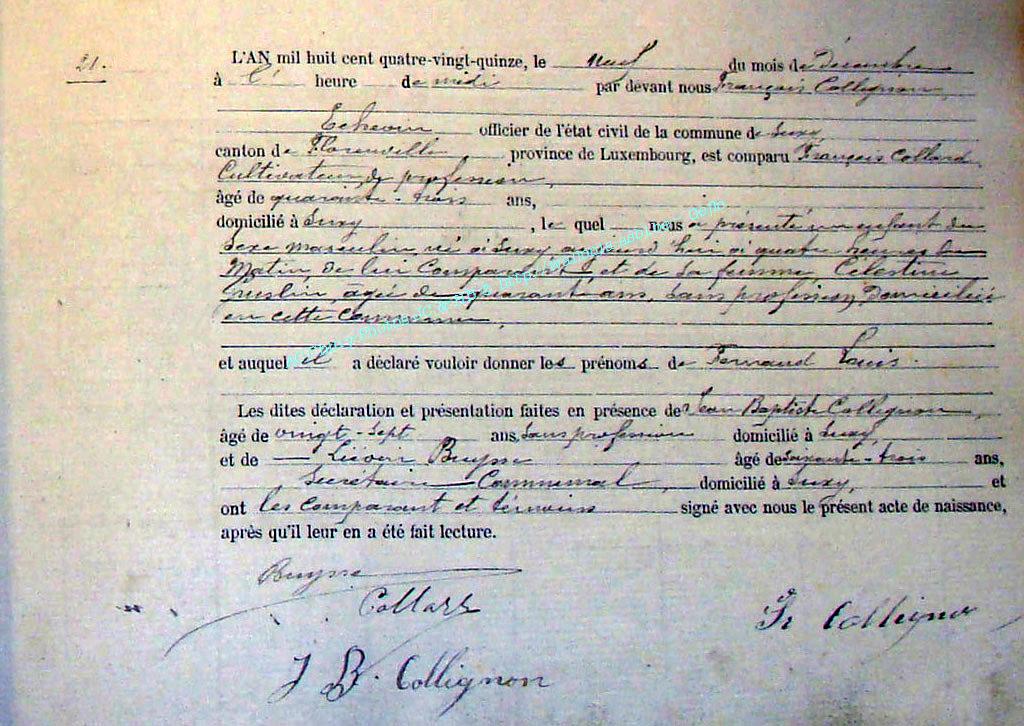 21.
L'AN mil huit cent quatre-vingt-quinze, le neuf du mois de Décembre
à heure de midi par devant nous François Collignon,
Echevin, officier de l'état civil de la commune de Suxy,
canton de Florenville province de Luxembourg, est comparu François Collard
Cultivateur, de profession,
âgé de quarante-trois ans,
domicilié à Suxy , le quel nous a présenté un enfant du
sexe masculin, né à Suxy aujourd'hui à quatre heures du
Matin, de lui Comparant, et de sa femme, Célestine
âgée de quarante ans, sans profession, Domiciliée
en cette Commune,
et auquel il a déclaré vouloir donner les prénoms de Fernand Louis.
Les dites déclaration et présentation faites en présence de Jean Baptiste Collignon,
âgé de vingt-sept ans, sans profession domicilié à Suxy,
et de — Buysse âgé de soixante-trois ans,
Secrétaire Communal, domicilié à Suxy, et
ont les comparant et témoins signé avec nous le présent acte de naissance,
après qu'il leur en a été fait lecture.
Buysse
Collard
Fr Collignon
J B. Collignon